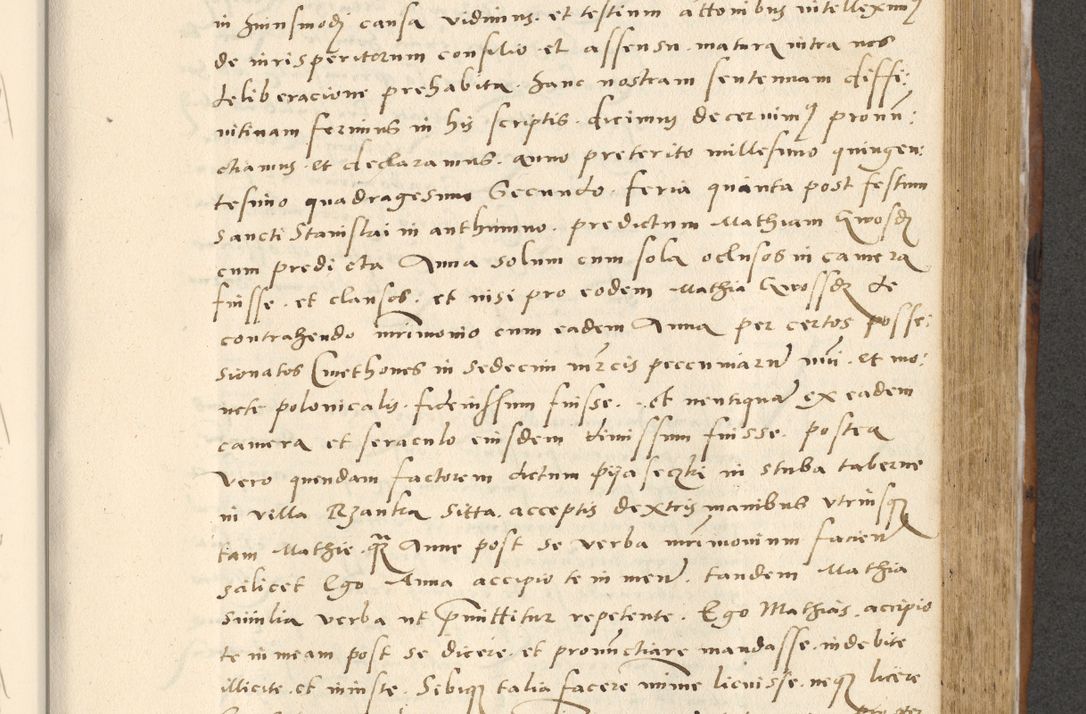 in huiusmodj causa vidimus. et testium attonibus intellexim9
de iurisperitorum consilio et assensu. matura intra nos
deliberacione prehabita. hanc nostram sententiam deffi:
nitiuam ferimus in his scriptis. dicimus decernim9 pronun:
ctiamus. et declaramus. anno preterito millesimo quingen:
tesimo quadragesimo Secundo. feria quinta post festum
Sancti Stanislai in anthumno. predictum Mathiam Gwosdz
cum predicta Anna solum cum sola oclusos in camera
fuisse. et clausos. et nisi pro eodem Mathia Gwossdz de
contrahendo mrimonio cum eadem Anna per certos posse:
sionatos Cmethones in sedecim mrcis peccuniarum nui. et mo:
nete polonicalis. fideiussum fuisse. et neutiquam ex eadem
camera et seraculo eiusdem dimissum fuisse. postea
vero quendam factorem dictum pijaseczki in stuba taberne
in villa Rzanka Sitta. acceptis dextris manibus vtriusque
tam Mathie. quam Anne post se verba mrimonium facien
scilicet Ego Anna accipio te in meum. tandem Mathia
Similia verba ut premittitur repetente. Ego Mathias. accipio
te in meam post se dicere. et pronunctiare mandasse. indebite
illicite. et iniuste. Sibique talia facere minime licuisse. neque licere